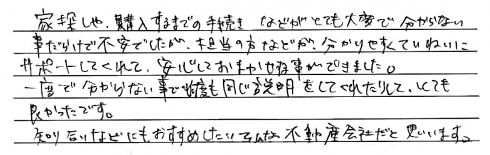 家探しや、購入するまでの手続き などがとても大変で分からない
事だらけで不安でしたが、担当の方などが、分かりやすくていねいに
サポートしてくれて、安心しておまかせする事ができました。
一度で分からない事で何度も同じ説明をしてくれたりして、とても
良かったです。
知り合いなどにもおすすめしたい 不動産会社だと思います。